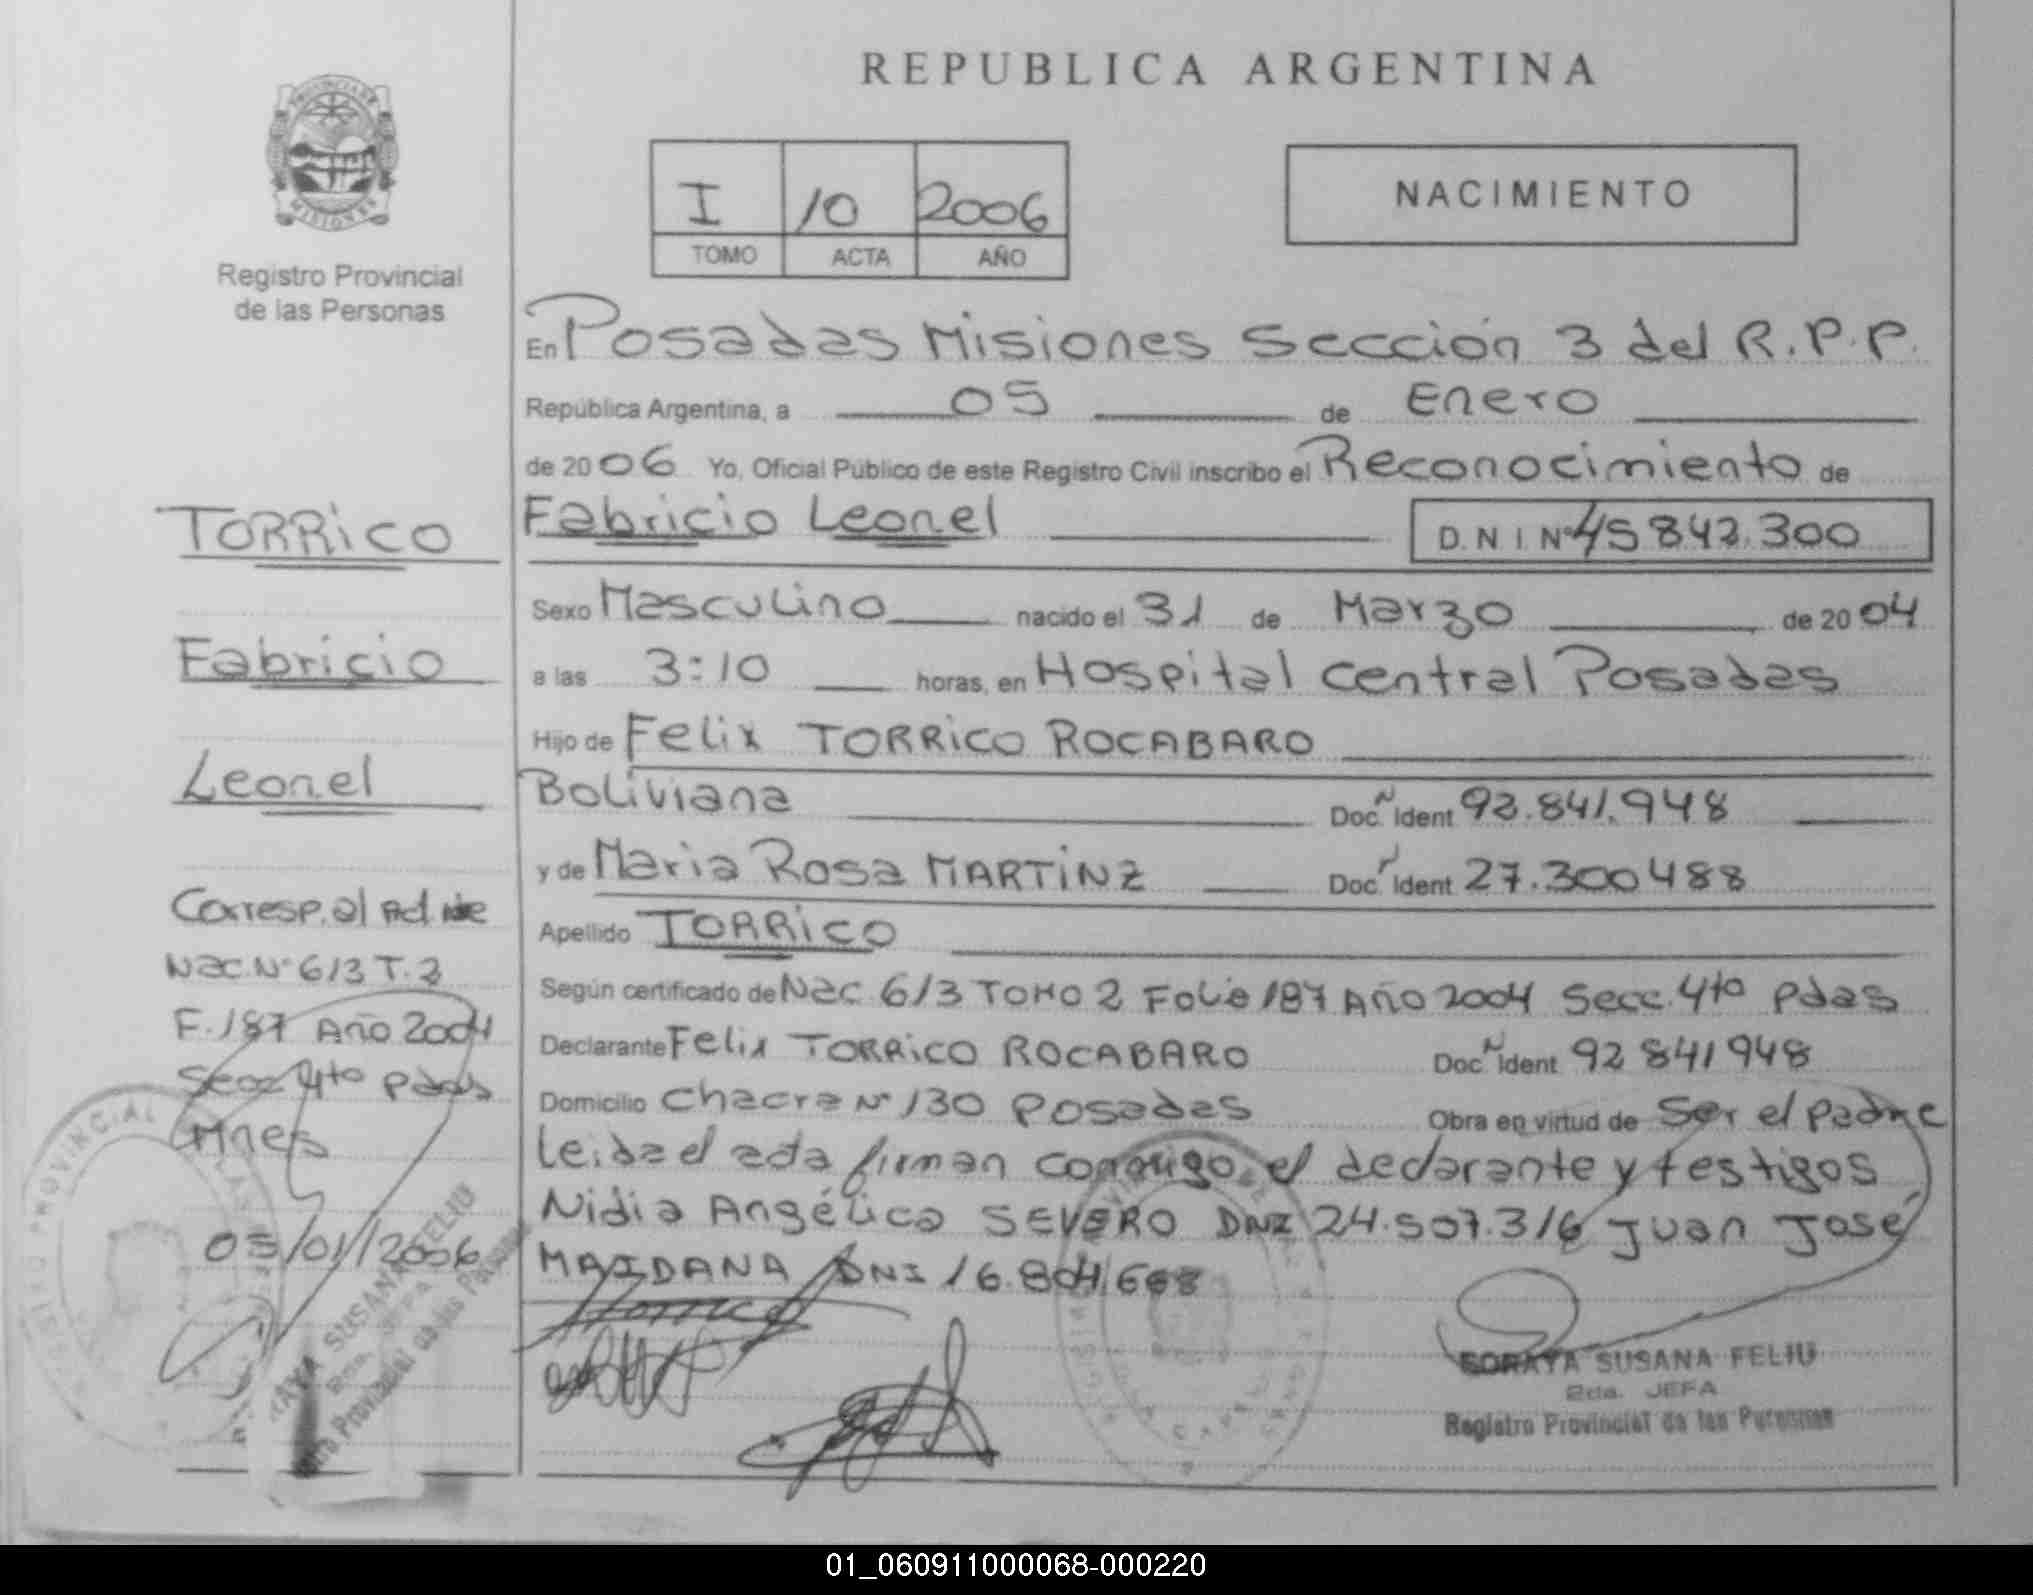 REPUBLICA ARGENTINA
PROVINCIA DE
MISIONES
Registro Provincial
de las Personas
I 10 2006
TOMO ACTA AÑO
NACIMIENTO
En Posadas Misiones Sección 3 del R.P.P.
República Argentina, a 05 de Enero
de 2006 Yo, Oficial Público de este Registro Civil inscribo el Reconocimiento de
Fabricio Leonel D.N.I Nº 45842.300
Sexo Masculino nacido el 31 de Marzo de 2004
a las 3:10 horas, en Hospital Central Posadas
Hijo de Felix TORRICO ROCABARO
Boliviana Doc. N Ident 92.841.948
y de Maria Rosa MARTINZ Doc. N Ident 27.300488
Apellido TORRICO
Según certificado de Nac 613 TOMO 2 Folio 187 Año 2004 Secc. 4to Pdas
Declarante Felix TORRICO ROCABARO Doc. N Ident 92 841948
Domicilio Chacra Nº 130 Posadas Obra en virtud de Ser el padre
Leida el acta firman conmigo el declarante y testigos
Nidia Angélica SEVERO DNI 24.507.316 Juan José
MAIDANA DNI 16.804668
Torrico
SORAYA SUSANA FELIU
2da. JEFA
Registro Provincial de las Personas
TORRICO
Fabricio
Leonel
Corresp. al Act de
Nac. Nº 613 T. 2
F. 187 Año 2004
Secc 4to Pdas
Mnes
05/01/2006
01_060911000068-000220